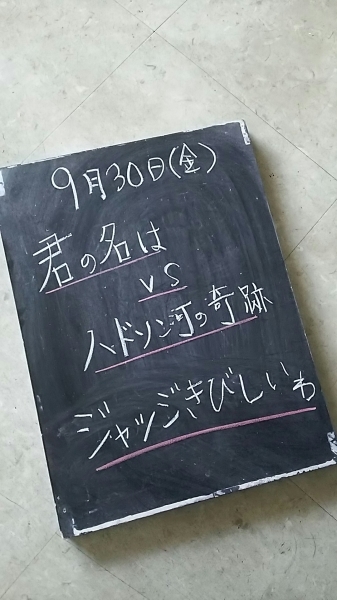 9月30日(金)
君の名は
vs
ハドソン河の奇跡
ジャッジきびしいわ